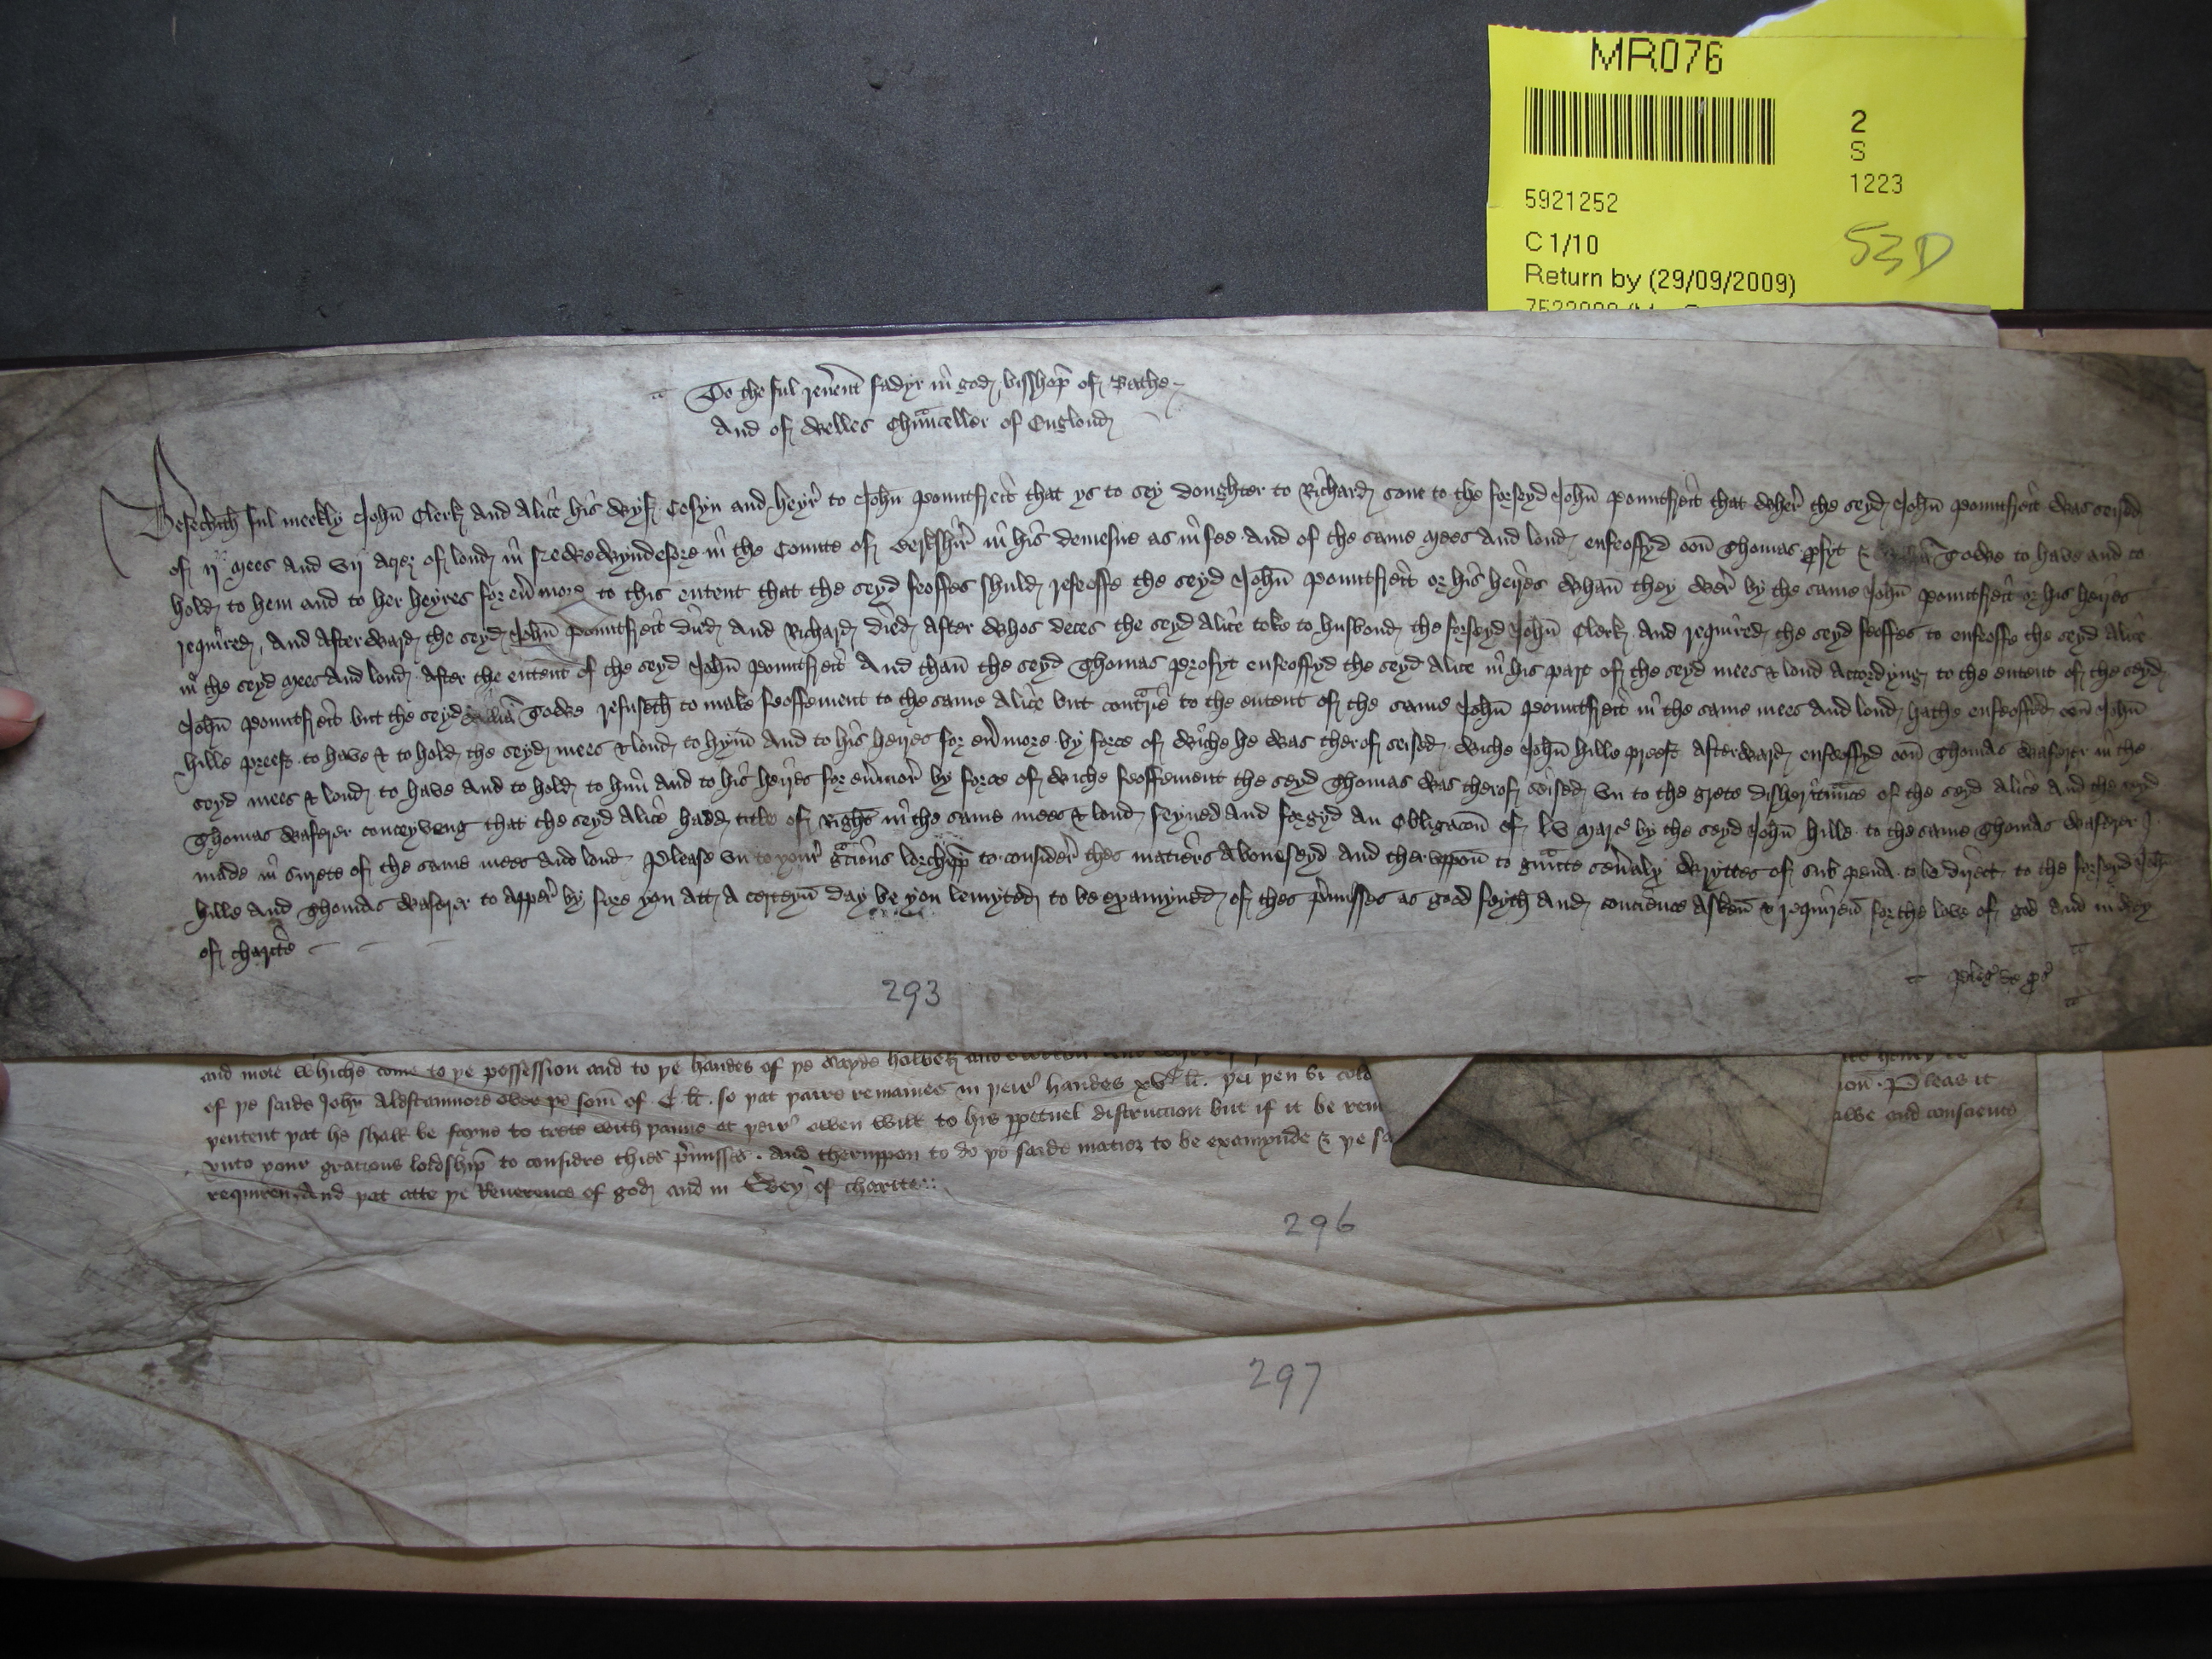 MR076
2
S
1223
5921252
C 1/10
53D
Return by (29/09/2009)
To the ful reverent fadyr in god bisshop of Bathe
And of Welles Chaunceller of Englond
Besechith ful meekly John Clerk And Alice his Wyf Cosyn and heyr to John Pountfreit that ys to sey doughter to Richard sone to the forseyd John Pountfreit that wher the seyd John Pountfreit was seised
of ij mees And vij acres of lond in Newe Wyndesore in the Counte of Berkshir in his demesne as in fee And of the same mees And lond enfeoffyd oon Thomas Profyt & Gowe to have and to
hold to hem and to her heyres for evermore to this entent that the seyd feoffes shuld refeoffe the seyd John Pountfreit or his heyres whan they wer by the same John Pountfreit or his heyres
required And afterward the seyd John Pountfreit died And Richard died After whos deces the seyd Alice toke to husbond the forseyd John Clerk And required the seyd feoffes to enfeoffe the seyd Alice
in the seyd mees And lond After the entent of the seyd John Pountfreit And than the seyd Thomas Profyt enfeoffyd the seyd Alice in his part of the seyd mees & lond Accordyng to the entent of the seyd
John Pountfreit but the seyd Gowe refuseth to make feoffement to the same Alice but contrarie to the entent of the same John Pountfreit in the same mees And lond hathe enfeoffed oon John
Hille preest to have & to hold the seyd mees & lond to hym And to his heyres for evermore by force of wiche he was therof seised wiche John Hille preest Afterward enfeoffyd oon Thomas Waferer in the
seyd mees & lond to have And to hold to him And to his heyres for evermor by force of wiche feoffement the seyd Thomas was therof seised un to the grete disheritaunce of the seyd Alice And the seyd
Thomas Waferer conceyveng that the seyd Alice hadd title of Right in the same mees & lond feyned And forgyd An Obligacon of lv marc by the seyd John Hille to the same Thomas Waferer
made in surete of the same mees and lond Please un to your gracious lorchipp to consider thes matiers Aboueseyd And theruppon to graunte severaly Wryttes of sub pena to be direct to the forseyd John
Hille And Thomas Waferer to Apper by fore you Att A certeyn day be you lemyted to be examyned of thes premisses as good feyth And concience Asken & requiren for the love of god And in wey
of charite
Pleg de pros
293
and more whiche come to þe possession and to þe handes of þe
of þe saide John Aldstanmore over þe som of C li. so þat þaire remaines in þeir handes
þentent þat he shall be fayne to trete with þaime at þeir owen will to his perpetuel distruccion but if it be rem
unto your gracious lordship to considre thies premisses. And theruppon to do þe saide matier to be examynde & þe sa
requiren And þat atte þe Reverence of god and in Wey of charite
ion. Pleas it
awe and conscience
296
297